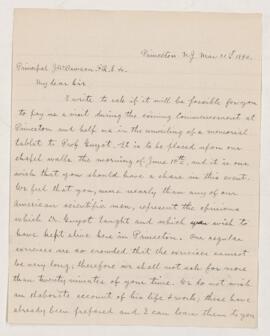 Princeton. N.J. Mar 21st 1890.
Principal J. Wm Dawson. F.R.S. &c.
My dear Sir.
I write to ask if it will be possible for you
to pay us a visit during the coming commencement at
Princeton and help us in the unveiling of a memorial
tablet to Prof. Guyot. It is to be placed upon our
chapel walls the morning of June 10th, and it is our
wish that you should have a share in this event.
We feel that you, more nearly than any of our
american scientific men, represent the opinions
which Dr. Guyot taught and which we wish to
have kept alive here in Princeton. Our regular
exercises are so crowded that the exercises cannot
be very long; therefore we shall not ask for more
than twenty minutes of your time. We do not wish
an elaborate account of his life & work; these have
already been prepared and I can loan them to you